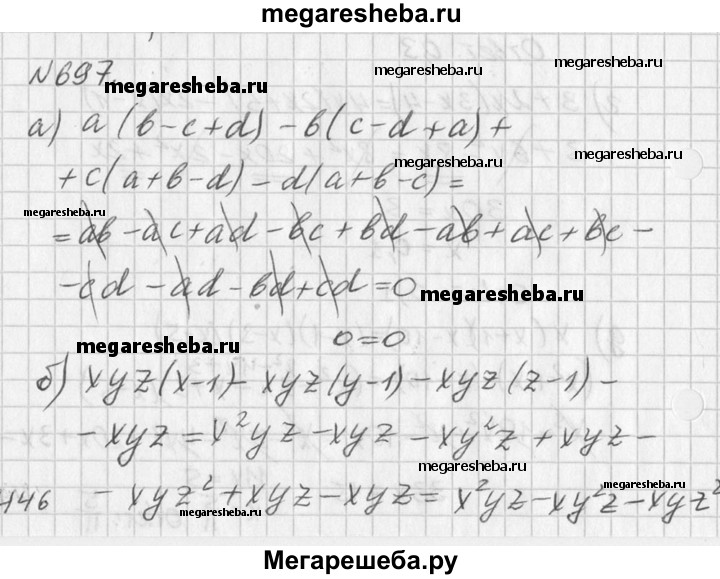 megaresheba.ru
N697.
megaresheba.ru
megaresheba.ru
megaresheba.ru
а) a(b-c+d)-b(c-d+a)+
megaresheba.ru
+c(a+b-d)-d(a+b-c)=
megaresheba.ru
=ab-ac+ad-bc+bd-ab+ac+bc-
-cd-ad-bd+cd=0
megaresheba.ru
0=0
megaresheba.ru
б) xyz(x-1)-xyz(y-1)-xyz(z-1)-
-xyz=x²yz-xyz-xy²z+xyz-
megaresheba.ru
megaresheba.ru
446 -xyz²+xyz-xyz=x²yz-xy²z-xyz²
megaresheba.ru
Мегарешеба.ру